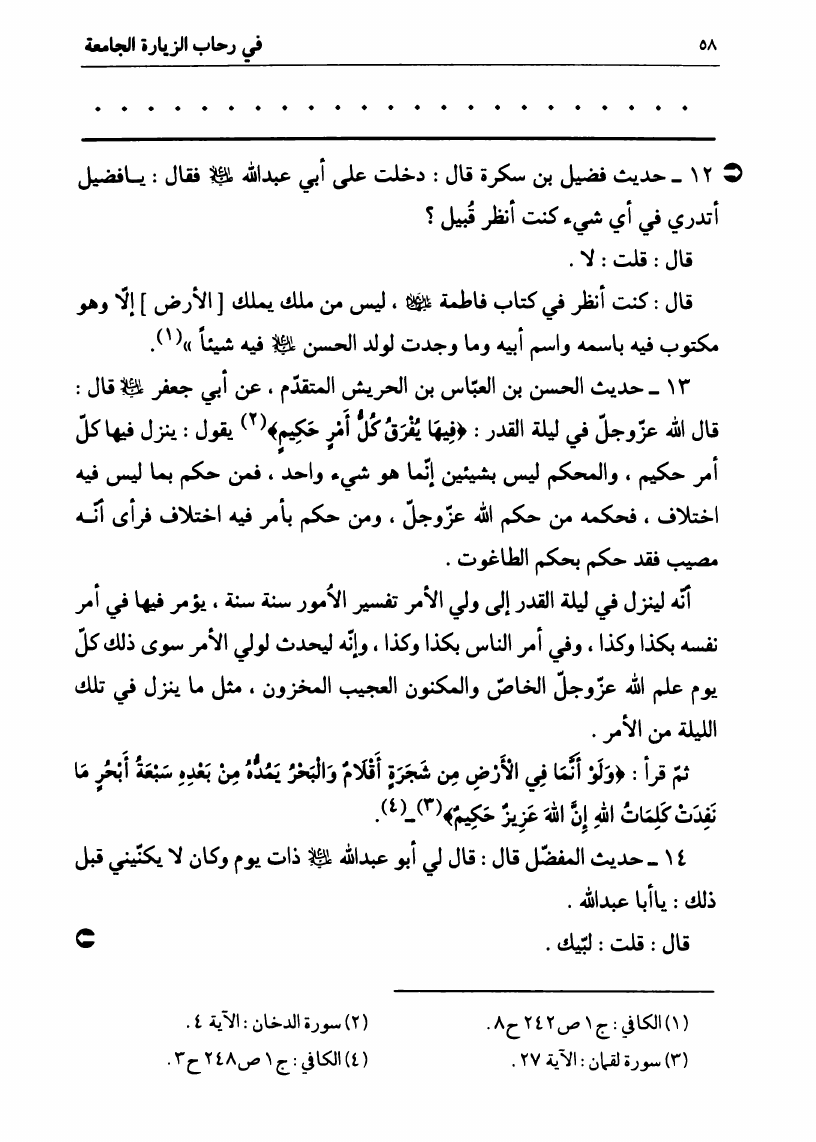 ٥٨ في رحاب الزيارة الجامعة
١٢ ـ حديث فضيل بن سكرة قال : دخلت على أبي عبدالله عليه السلام فقال : يـافضيل
أتدري في أي شيء كنت أنظر قُبيل ؟
قال : قلت : لا .
قال : كنت أنظر في كتاب فاطمة عليها السلام ، ليس من ملك يملك [ الأرض ] إلّا وهو
مكتوب فيه باسمه واسم أبيه وما وجدت لولد الحسن عليه السلام فيه شيئاً »(١).
١٣ ـ حديث الحسن بن العبّاس بن الحريش المتقدّم ، عن أبي جعفر عليه السلام قال :
قال الله عزّوجلّ في ليلة القدر : ﴿فِيهَا يُفْرَقُ كُلُّ أَمْرٍ حَكِيمٍ﴾(٢) يقول : ينزل فيها كلّ
أمر حكيم ، والمحكم ليس بشيئين إنّما هو شيء واحد ، فمن حكم بما ليس فيه
اختلاف ، فحكمه من حكم الله عزّوجلّ ، ومن حكم بأمر فيه اختلاف فرأى أنّـه
مصيب فقد حكم بحكم الطاغوت .
أنّه لينزل في ليلة القدر إلى ولي الأمر تفسير الاُمور سنة سنة ، يؤمر فيها في أمر
نفسه بكذا وكذا ، وفي أمر الناس بكذا وكذا ، وإنّه ليحدث لولي الأمر سوى ذلك كلّ
يوم علم الله عزّوجلّ الخاصّ والمكنون العجيب المخزون ، مثل ما ينزل في تلك
الليلة من الأمر .
ثمّ قرأ : ﴿وَلَوْ أَنَّمَا فِي الْأَرْضِ مِن شَجَرَةٍ أَقْلَامٌ وَالْبَحْرُ يَمُدُّهُ مِنْ بَعْدِهِ سَبْعَةُ أَبْحُرٍ مَا
نَفِدَتْ كَلِمَاتُ اللهِ إِنَّ اللهَ عَزِيزٌ حَكِيمٌ﴾(٣)ـ(٤).
١٤ ـ حديث المفضّل قال : قال لي أبو عبدالله عليه السلام ذات يوم وكان لا يكنّيني قبل
ذلك : ياأبا عبدالله .
قال : قلت : لبّيك .
(١) الكافي : ج١ ص٢٤٢ ح٨. (٢) سورة الدخان : الآية ٤ .
(٣) سورة لقمان : الآية ٢٧ . (٤) الكافي : ج١ ص٢٤٨ ح٣.